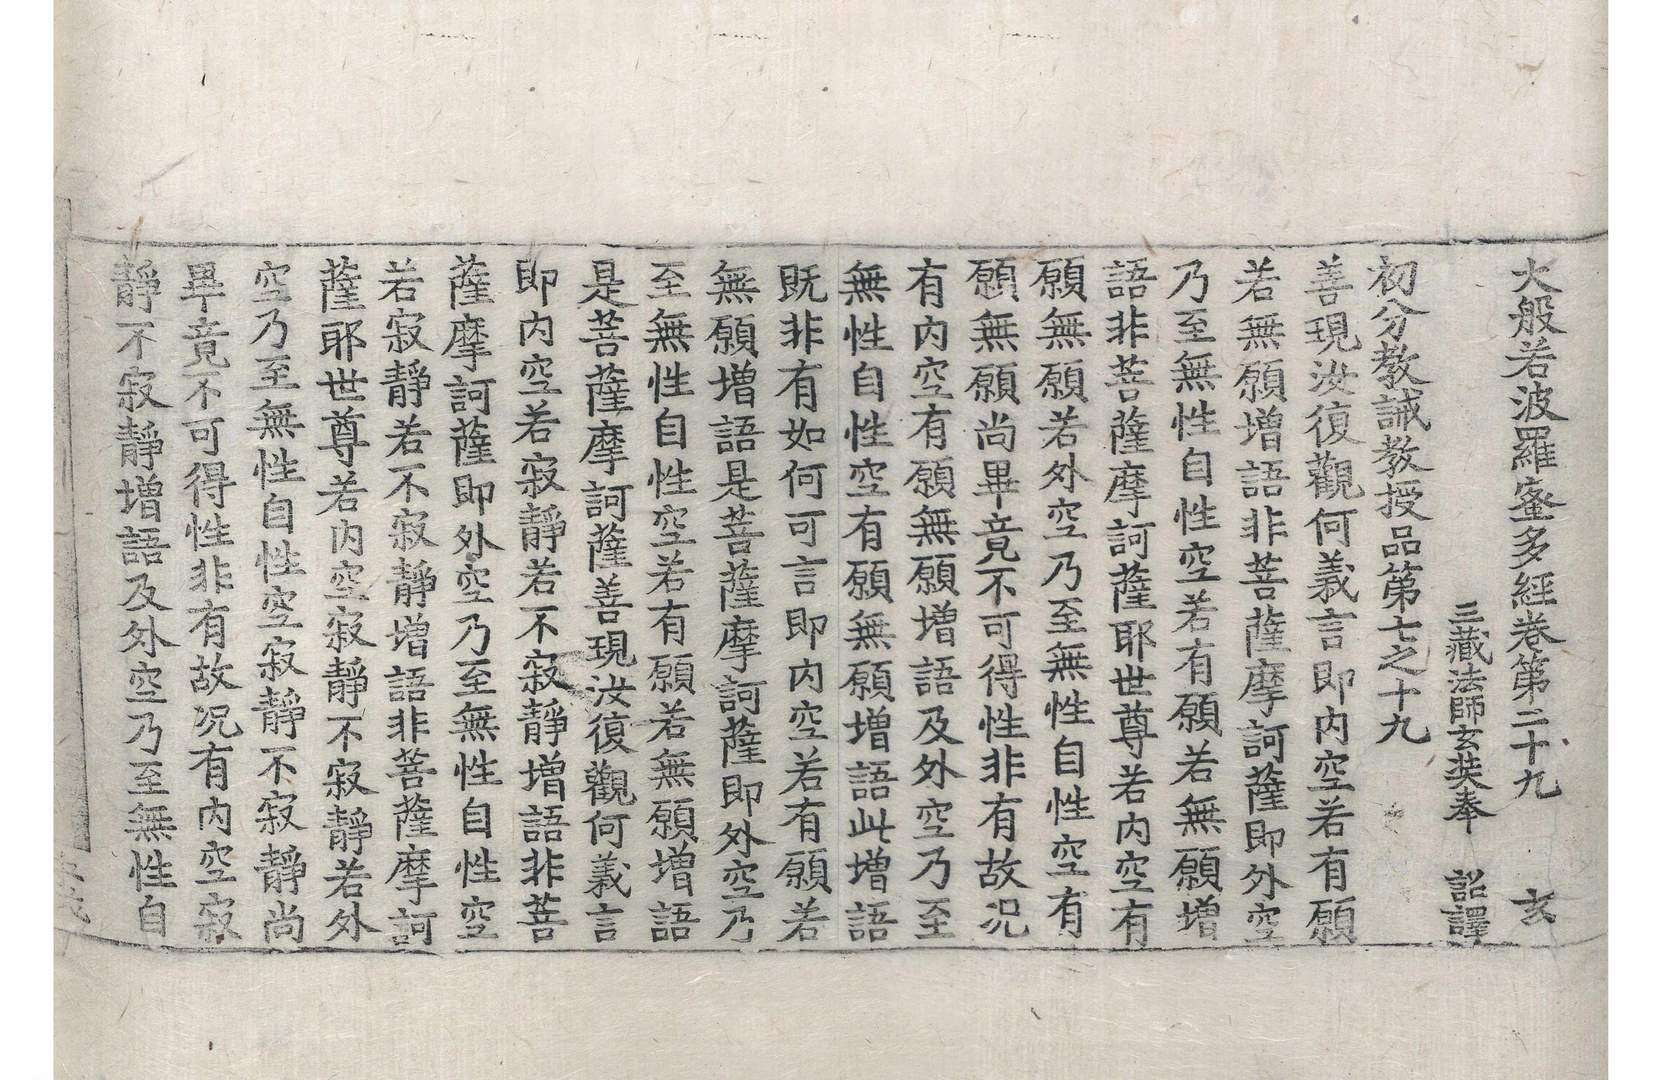 大般若波羅蜜多經卷第二十九 玄
三藏法師玄奘奉 詔譯
初分教誡教授品第七之十九
善現汝復觀何義言即內空若有願
若無願增語非菩薩摩訶薩即外空
乃至無性自性空若有願若無願增
語非菩薩摩訶薩耶世尊若內空有
願無願若外空乃至無性自性空有
願無願尚畢竟不可得性非有故況
有內空有願無願增語及外空乃至
無性自性空有願無願增語此增語
既非有如何可言即內空若有願若
無願增語是菩薩摩訶薩即外空乃
至無性自性空若有願若無願增語
是菩薩摩訶薩善現汝復觀何義言
即內空若寂靜若不寂靜增語非菩
薩摩訶薩即外空乃至無性自性空
若寂靜若不寂靜增語非菩薩摩訶
薩耶世尊若內空寂靜不寂靜若外
空乃至無性自性空寂靜不寂靜尚
畢竟不可得性非有故況有內空寂
靜不寂靜增語及外空乃至無性自